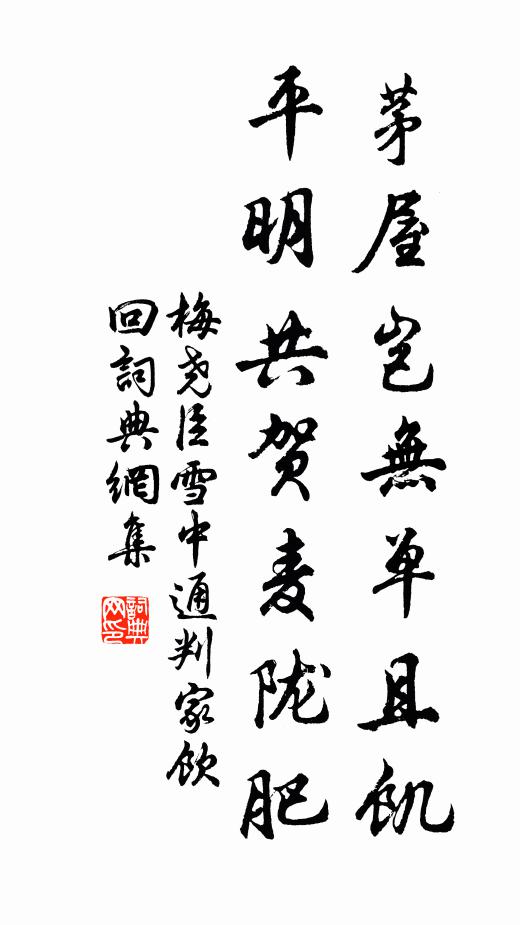 茅屋岂無单且飢
平明共贺麦陇肥
梅尧臣雪中通判家飲
回詞典網集
詞典
网印